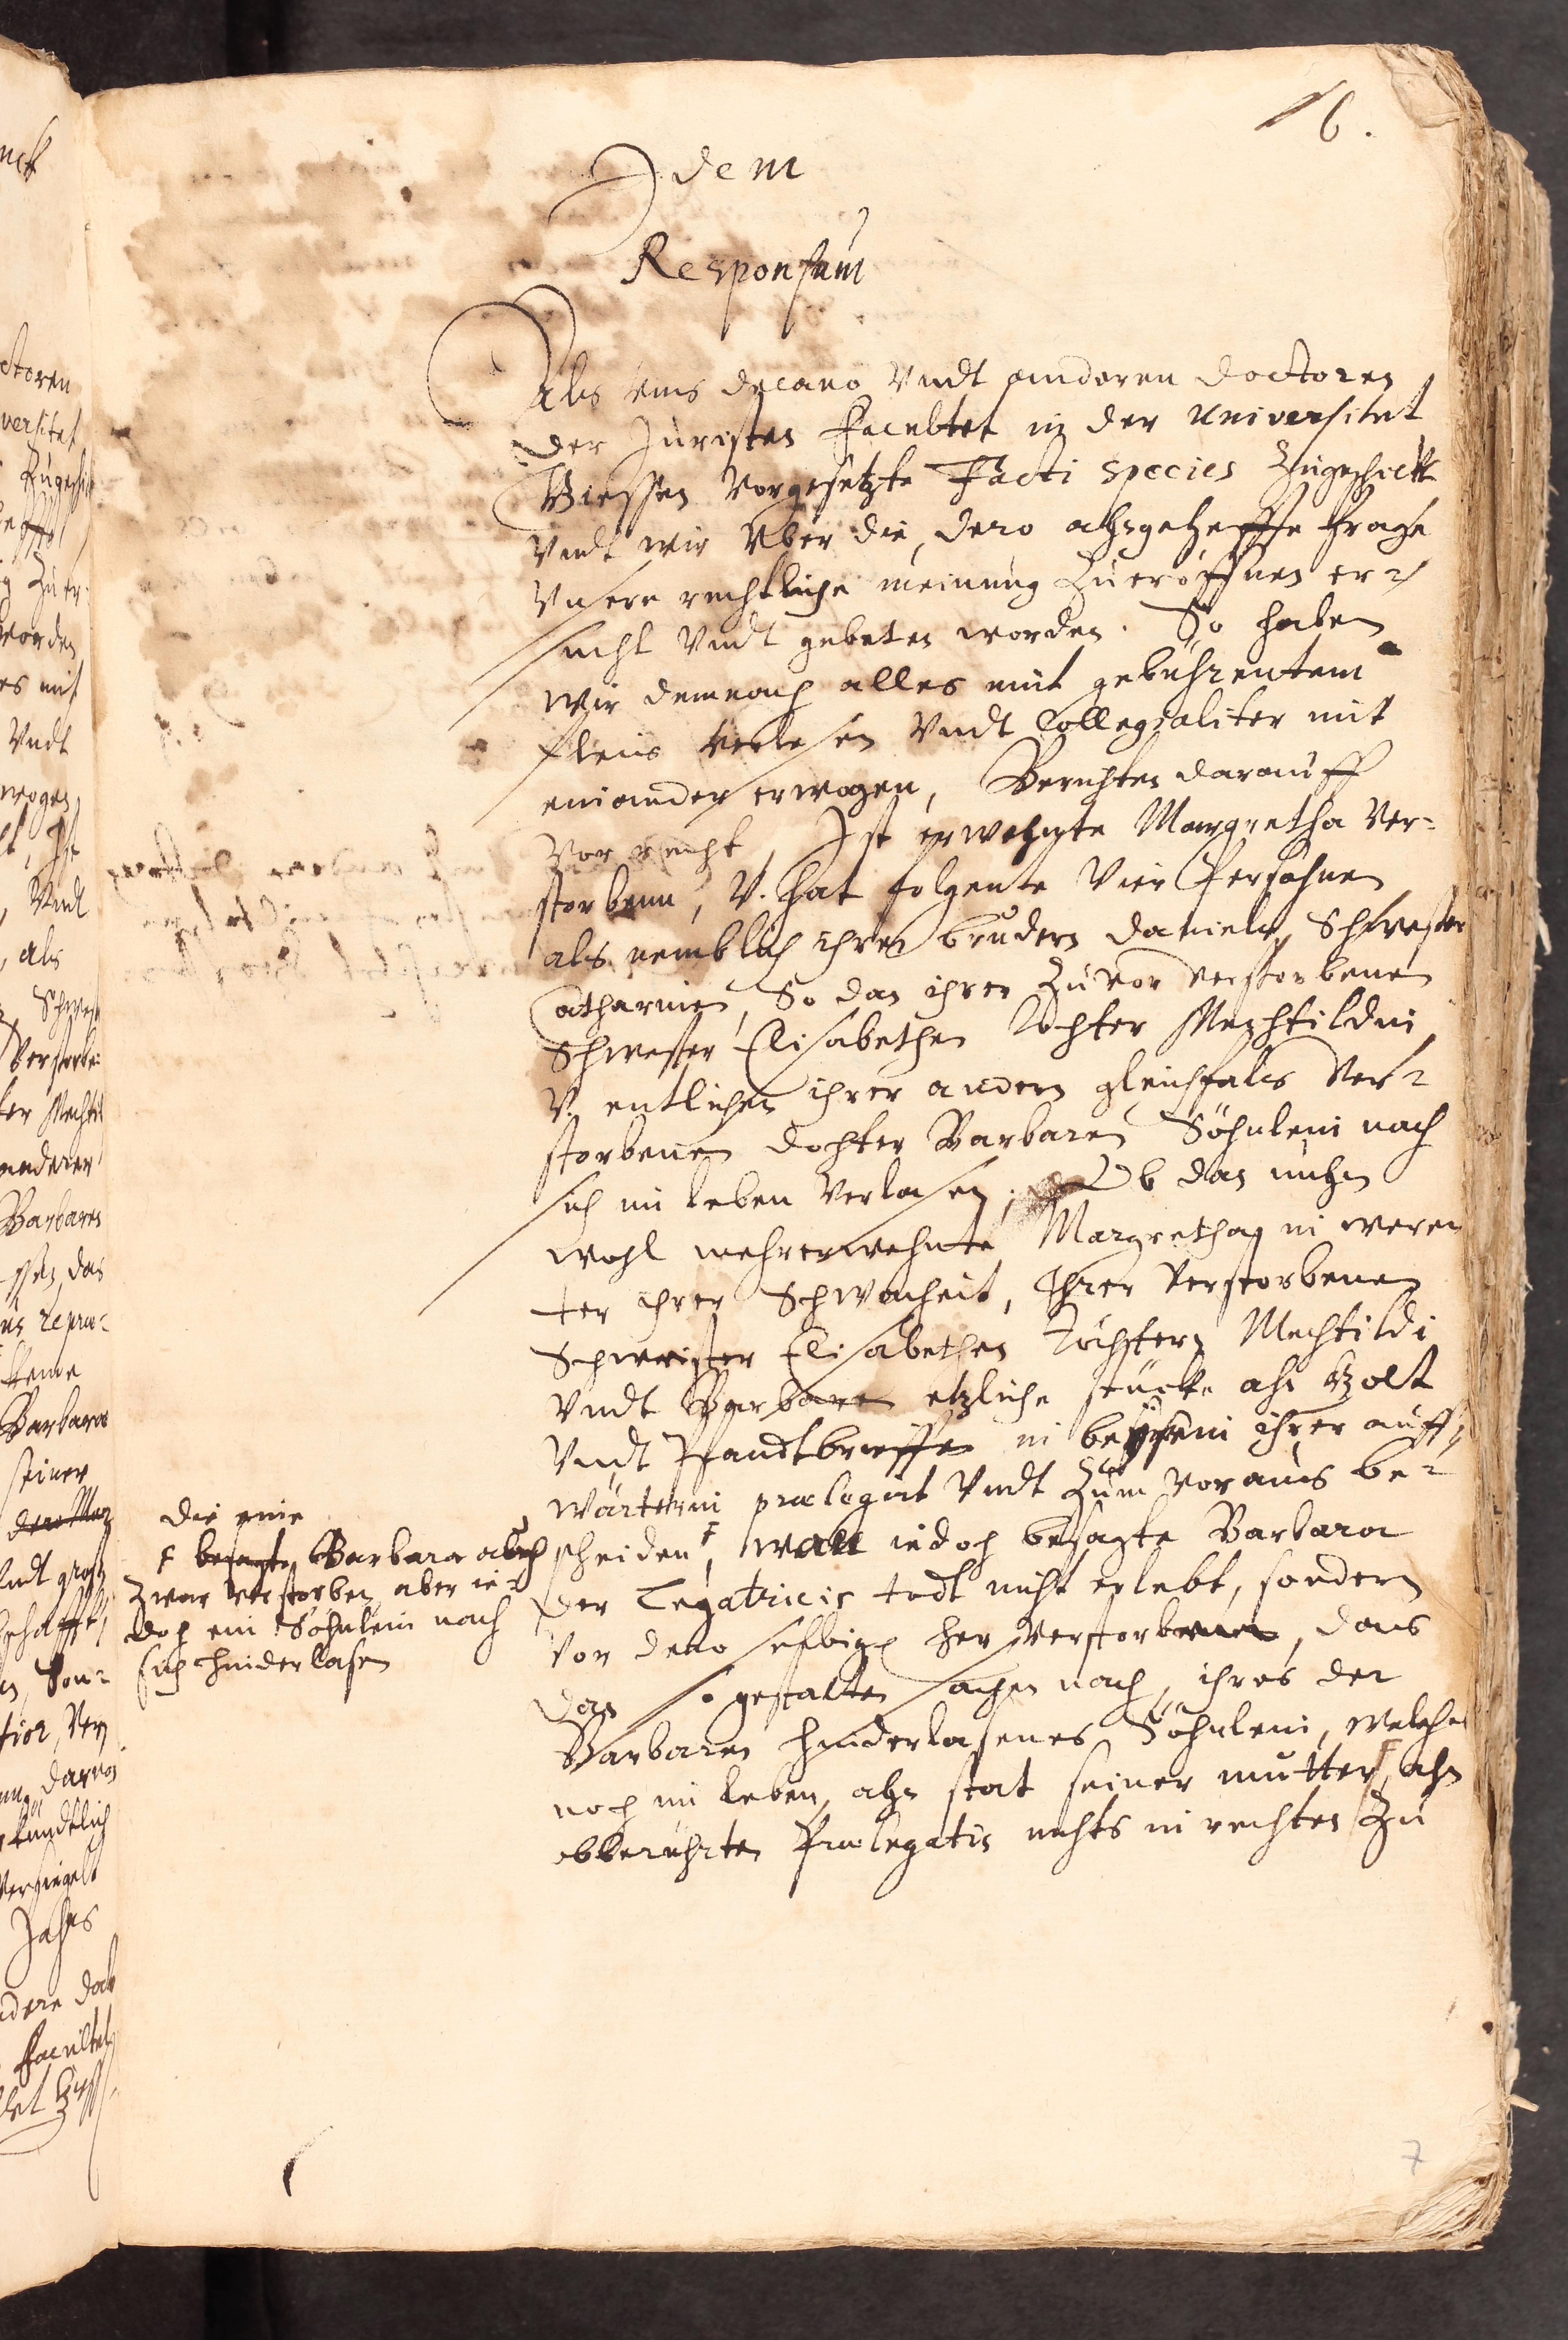 16.
Idem
Responsum
Als uns decano Vndt anderen doctoren
der Juristen Facultet in der Universitet
Giessen Vorgesetzte Facti species Zugeschickt
Vndt wir Vber die, dero ahngeheffte frage
Vnsere rechtliche meinung Zueröffnen er-
sucht Vndt gebeten worden. So haben
wir demnach alles mit gebührentem
fleiis verlesen Vndt Collegialiter mit
einander erwogen, Berichten darauff
Vor recht, Ist erwehnte Margretha Ver-
storbenn, V. hat folgente Vier Persohnen
als nemblich ihren brudern Danieln, Schwester
Catharinen, So dan ihrer Zuvor verstorbenen
Schwester Elisabethen Tochter Mechtildin
V. entlichen ihrer andern gleichfals Ver-
storbenen dochter Barbaren Söhnlein nach
sich im leben Verlasen, Ob dan nuhn
wohl mehrerwehnte Margretha in weren
ter ihrer Schwacheit, Ihrer Verstorbenen
Schwester Elisabethen Töchtern Mechtildi
Vndt Barbaren etzliche stücke ahn Golt
Vndt Pfandtbrieffen in ihrer auff-
wärterin prælegirt Vndt Zum Voraus be-
scheiden, weill iedoch besagte Barbara
der Legatricis todt nicht erlebt, sondern
Vor deroselbigen her Verstorbenen, dans
dan so gestalten sachen nach, ihres der
Barbaren hinderlasenes Söhnlein, welches
noch im leben, ahn stat seiner mutter, ahn
obberührten Prælegatis nichts in rechten Zu
die eine
besagte Barbara auch
Zwar verstorben aber ie-
doch ein Söhnlein nach
sich hinderlasen
7